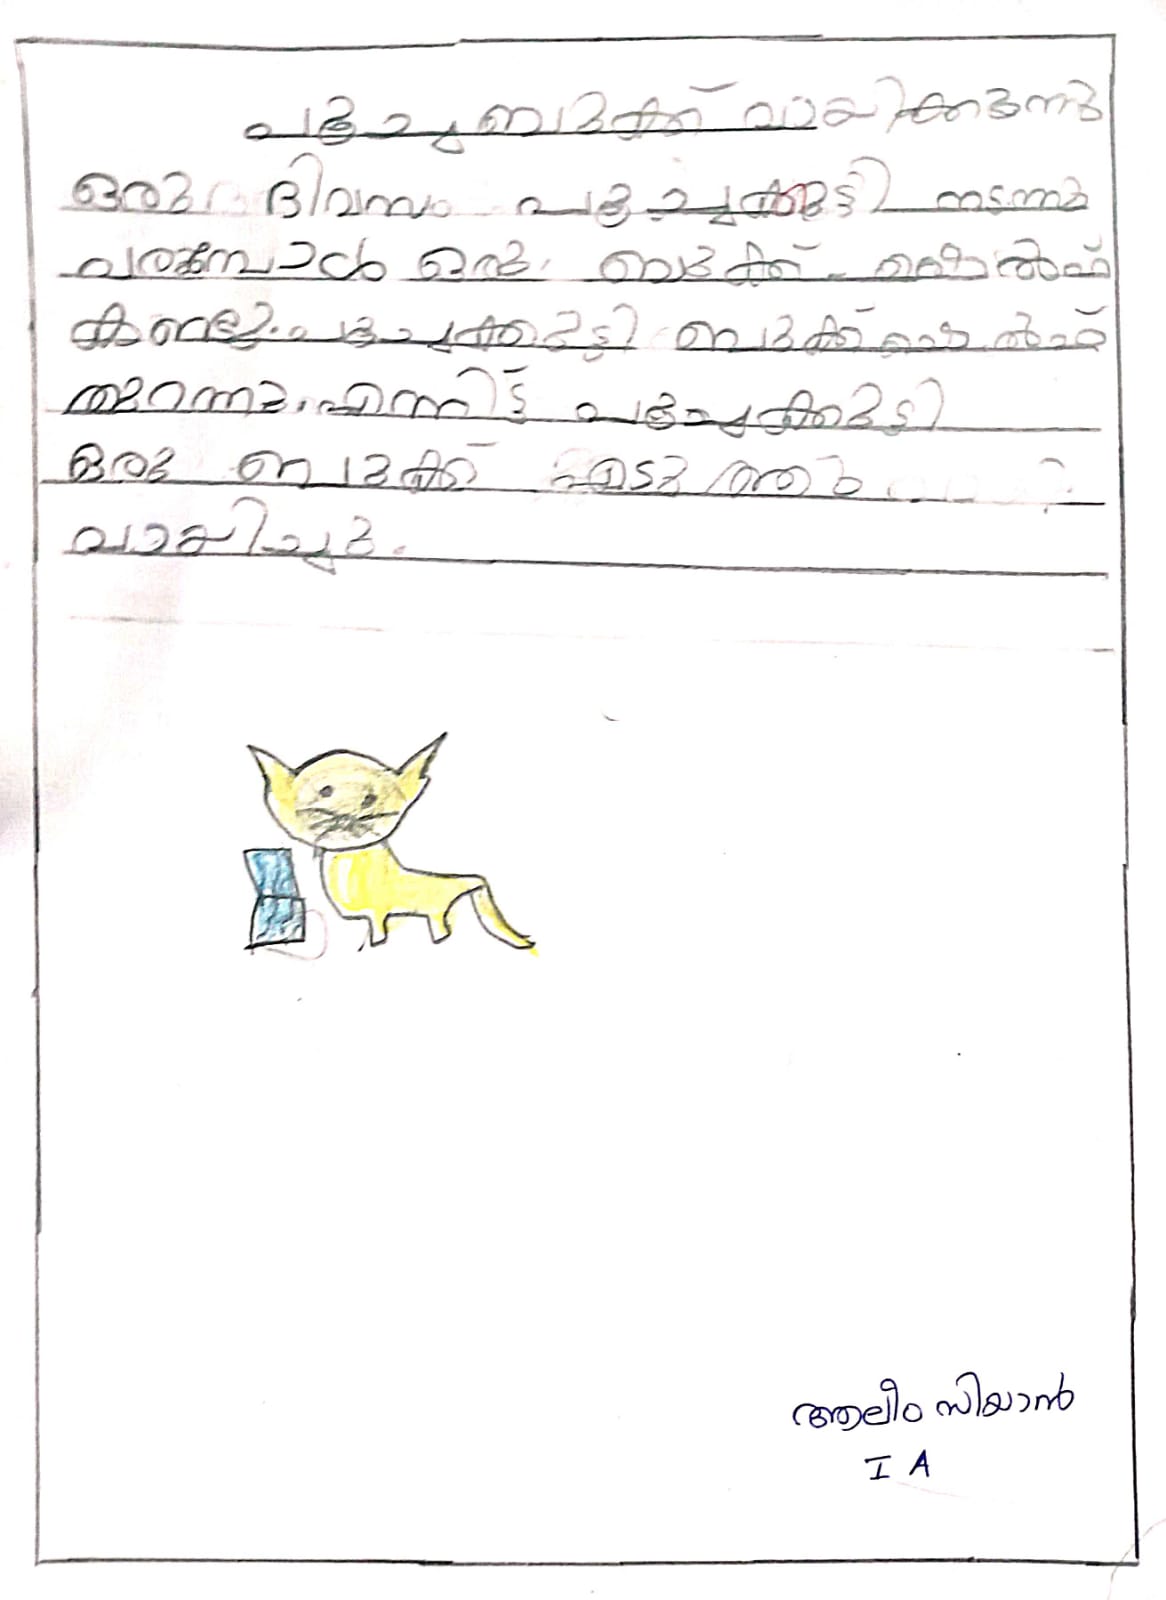 പൂച്ച ബുക്ക് വായിക്കുന്നു
ഒരു ദിവസം പൂച്ചക്കുട്ടി നടന്നു
വരുമ്പോൾ ഒരു ബുക്ക് ഷെൽഫ്
കണ്ടു. പൂച്ചക്കുട്ടി ബുക്ക് ഷെൽഫ്
തുറന്നു. എന്നിട്ട് പൂച്ചക്കുട്ടി
ഒരു ബുക്ക് എടുത്തു
വായിച്ചു.
ആലീം സിയാൻ
I A